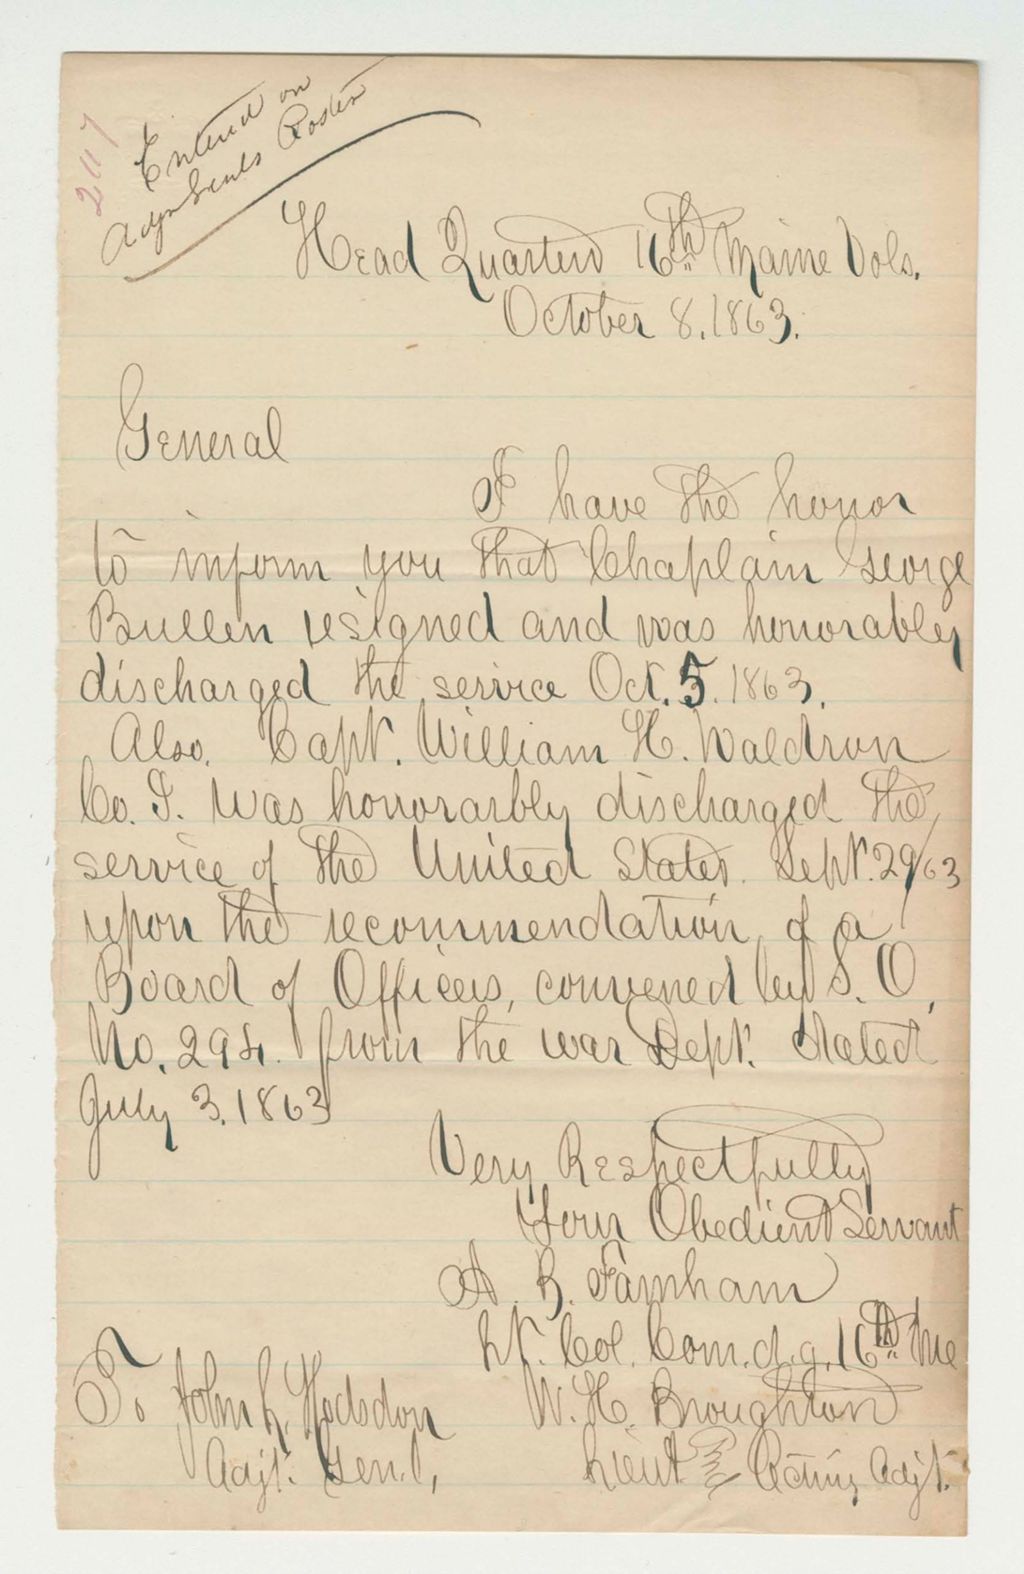 2117
Entered on
Adjutants Roster
Head Quarters 16th Maine Vols.
October 8, 1863.
General
I have the honor
to inform you that Chaplain George
Bullen resigned and was honorabley
discharged the service Oct. 5. 1863.
Also. Capt. William H. Waldron
Co. I. was honorarbly discharged the
service of the United States. Sept. 29/63
upon the recommendation of a
Board of Officers, convened by S. O,
No. 294. from the War Dept. dated
July 3. 1863
Very Respectfully
Your Obedient Servant
A. B. Farnham
Lt. Col. Com.d.g. 16th Me
To John L. Hodsdon
W. H. Broughton
Adjt. Genl,
Lieut & Acting Adjt.